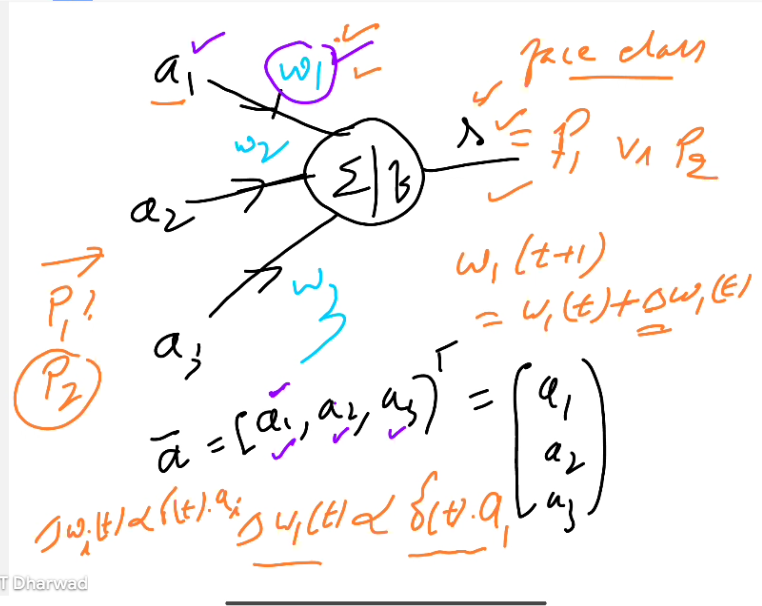 a₁ w₁ face class
w₂ Σ|f s = P₁ vs P₂
a₂
w₁(t+1)
P₁? w₃ = w₁(t)+Δw₁(t)
P₂ a₃
ā = [a₁, a₂, a₃]ᵀ = (a₁
a₂
a₃)
Δwᵢ(t) ∝ δ(t).aᵢ Δw₁(t) ∝ δ(t).a₁
T Dharwad